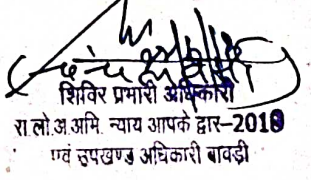 शिविर प्रभारी अधिकारी
रा.लो.अ.अभि. न्याय आपके द्वार–2018
एवं उपखण्ड अधिकारी बावड़ी